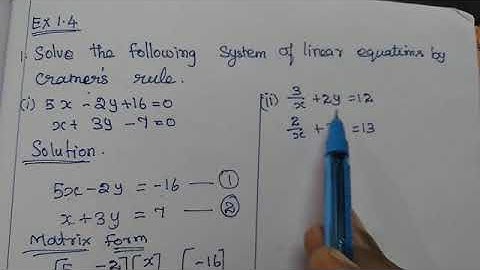 Ex 1.4
1. Solve the following System of linear equations by
Cramer's rule.
(i) 5x - 2y + 16 = 0
x + 3y - 7 = 0
Solution.
5x - 2y = -16 — ①
x + 3y = 7 — ②
Matrix form
[5 -2] [x] [-16]
(ii) 3/x + 2y = 12
2/x + = 13